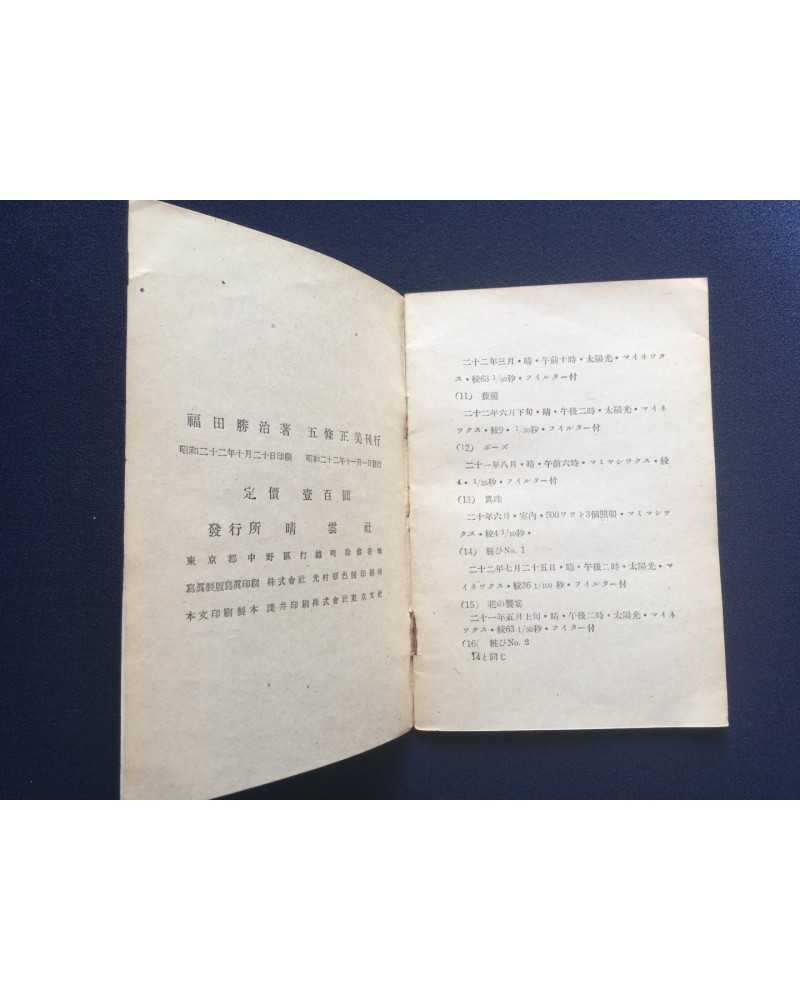 福田勝治著 五條正美刊行
昭和二十二年十月二十日印刷 昭和二十二年十一月一日發行
定價 壹百圓
發行所 晴雲社
東京都中野區打越町
寫眞製版寫眞印刷 株式會社 光村原色版印刷所
本文印刷製本 淺井印刷株式會社東京支社
二十二年三月・晴・午前十時・太陽光・マイネワク
ス・絞63 1/50秒・フイルター付
(11)
二十二年六月下旬・晴・午後二時・太陽光・マイネ
ワクス・絞9・1/30秒・フイルター付
(12) ポーズ
二十一年八月・晴・午前六時・マミマシワクス・絞
4・1/25秒・フイルター付
(13) 眞珠
二十年六月・室内・500ワツト3個照明・マミマシワ
クス・絞4 1/10秒・
(14) 粧ひNo. 1
二十二年七月二十五日・晴・午後二時・太陽光・マ
イネワクス・絞36 1/100 秒・フイルター付
(15) 花の饗宴
二十一年五月上旬・晴・午後二時・太陽光・マイネ
ワクス・絞63 1/50秒・フイター付
(16( 粧ひNo. 2
14と同じ